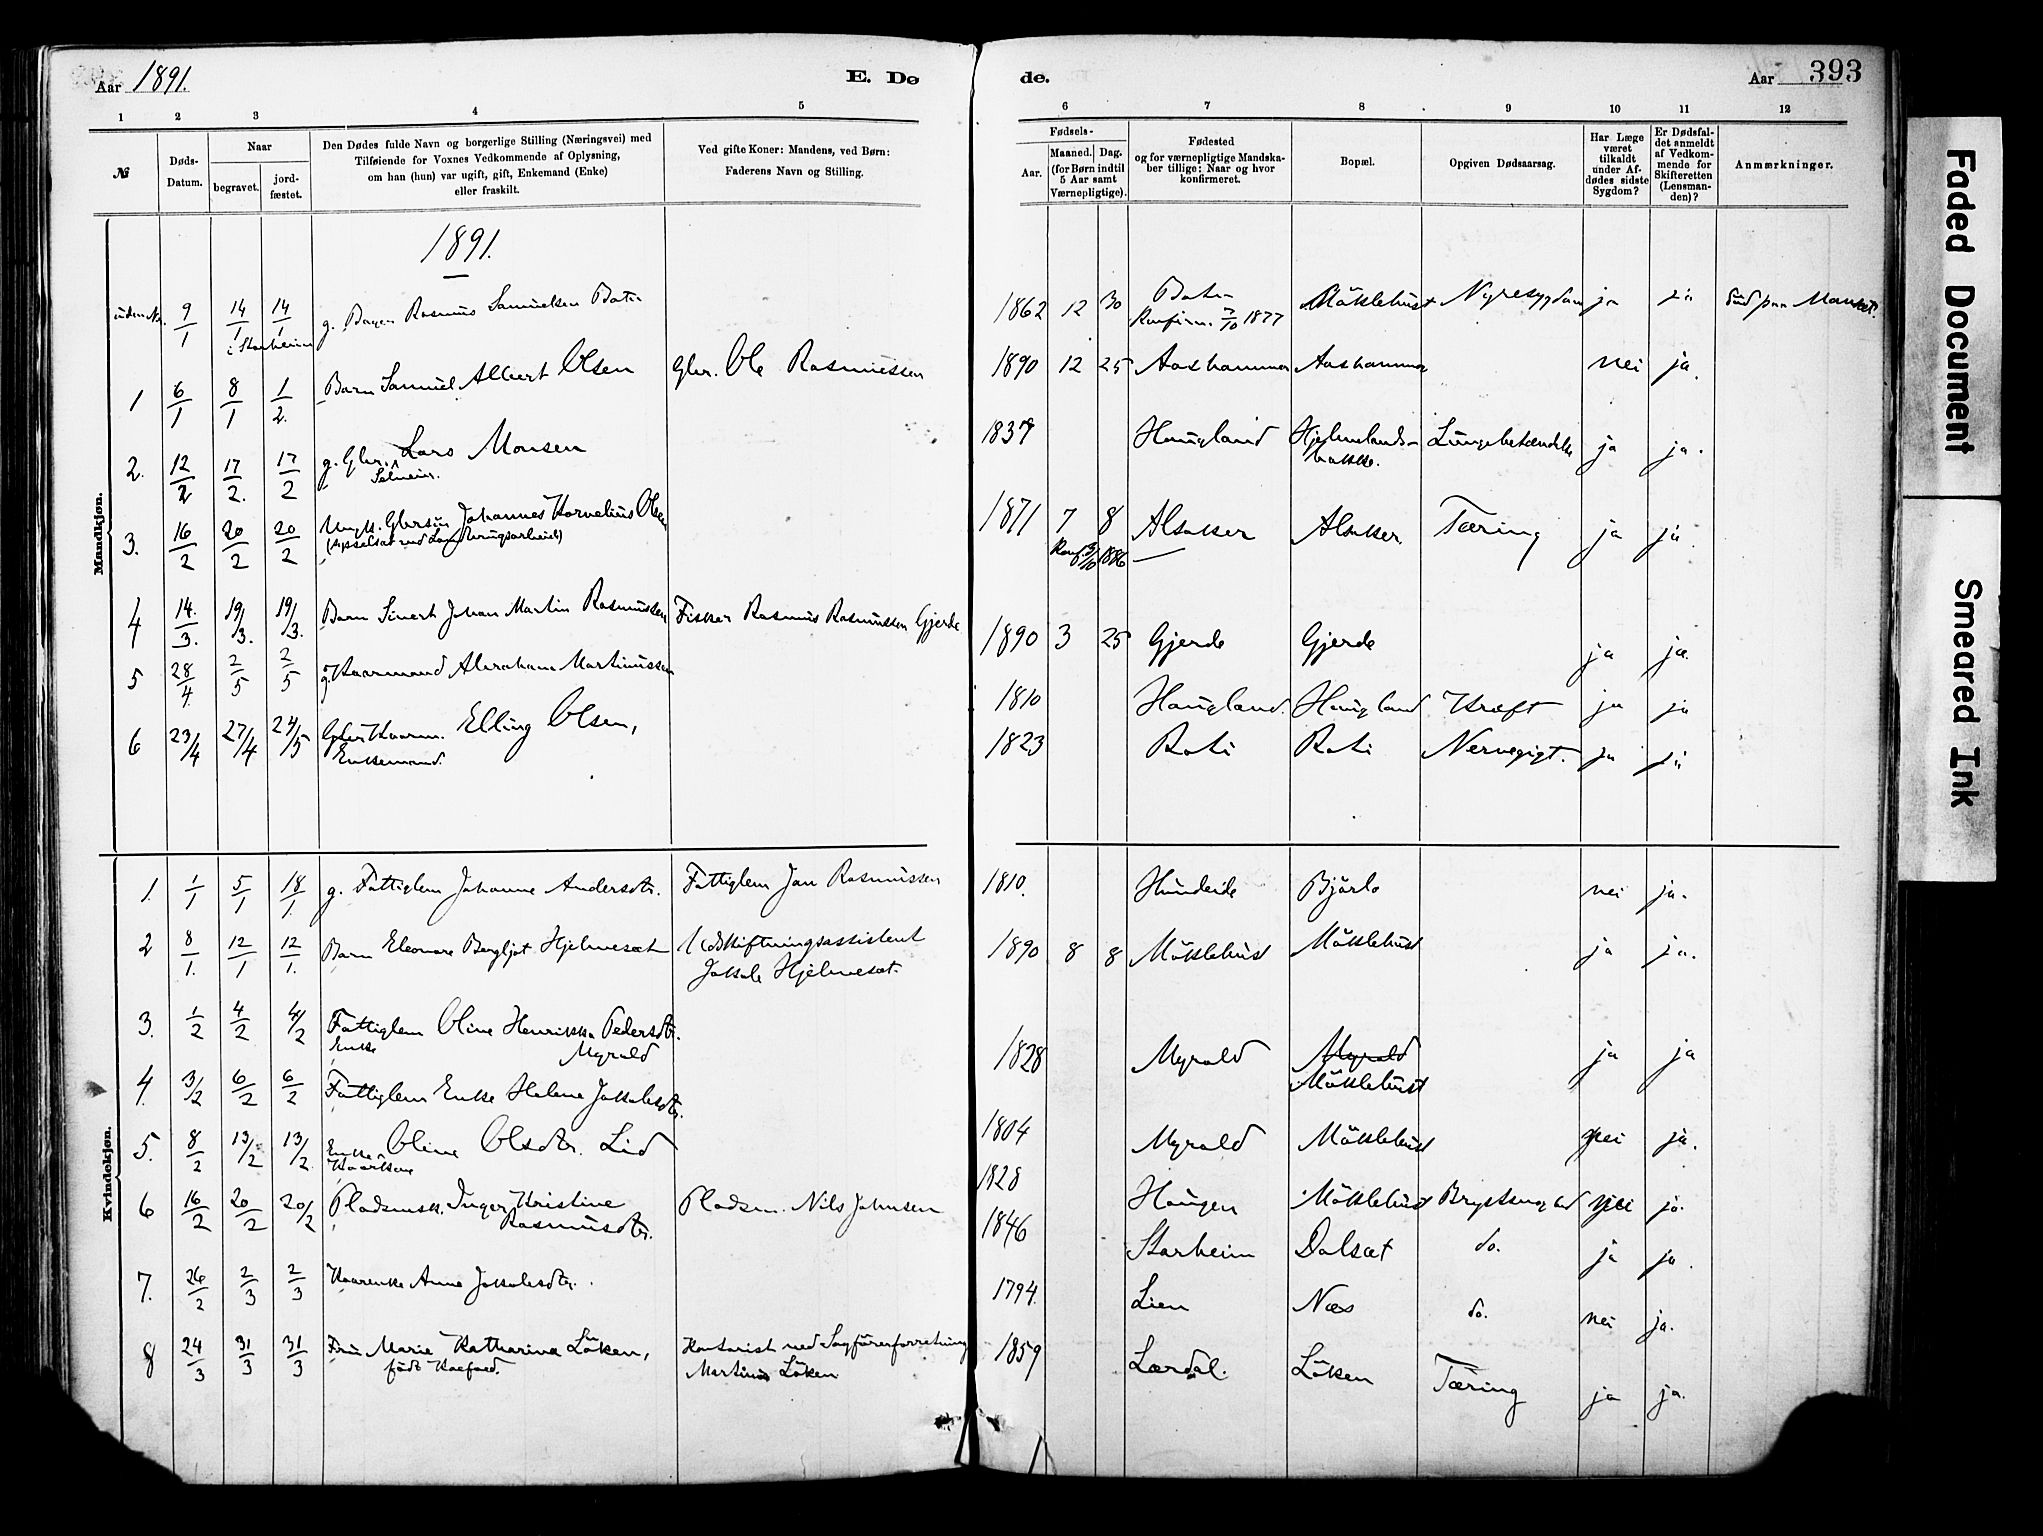 Aar 1891. E. Dø
1 2 3 4 5
№ Døds-Datum. Naar begravet. jordfæstet. Den Dødes fulde Navn og borgerlige Stilling (Næringsvei) med Tilføiende for Voxnes Vedkommende af Oplysning, om han (hun) var ugift, gift, Enkemand (Enke) eller fraskilt. Ved gifte Koner: Mandens, ved Børn: Faderens Navn og Stilling.
Mandkjøn.
1891.
uden No. 9/1 14/1 14/1 g. Rasmus Samuelsen
i Starheim
1 6/1 8/1 1/2. Barn Samuel Albert Olsen Gbr. Ole Rasmussen
2. 12/2 17/2. 17/2 g. Gbr. Lars Monsen
Selveier.
3. 16/2 20/2 20/2 Ungk. Gbrsøn Johannes Kornelius Olsen
4 14./3. 19/3. 19/3. Barn Sivert Johan Martin Rasmussen Fisker Rasmus Rasmussen Gjerde
5 28/4 2/5 2/5 g. Kaarmand Abraham Martinussen
6 23/4 27/4 24/5 Elling Olsen,
Enkemand.
Kvindekjøn.
1. 1/1 5/1 18/1. g. Fattiglem Johanne Andersdtr. Fattiglem Jan Rasmussen
2 8/1. 12/1 12/1. Barn Eleonore Bergljot Hjelmeset Udskiftningsassistent
Jakob Hjelmeset.
3. 1/2 4/2 4/2 Fattiglem Oline Henrikka Pedersdtr.
Enke Myrold
4. 3/2 6/2 6/2 Fattiglem Enke Helene Jakobsdtr.
5. 8/2 13/2 13/2. Enke Oline Olsdtr. Lid
Kaarkone
6 16/2 20/2 20/2 Pladsmsk. Inger Kristine Pladsm. Nils Johnsen
Rasmusdtr.
7. 26/2 2/3 2/3 Kaarenke Anne Jakobsdtr.
8 24/3 31/3 31/3 Fru Marie Katharina Löken, Kontorist ved Sagförerforretning
født Koefoed. Martinus Löken
de. Aar 393
6 7 8 9 10 11 12
Fødsels-
Aar. Maaned. Dag. (for Børn indtil 5 Aar samt Værnepligtige). Fødested og for værnepligtige Mandskaber tillige: Naar og hvor konfirmeret. Bopæl. Opgiven Dødsaarsag. Har Læge været tilkaldt under Afdødes sidste Sygdom? Er Dødsfaldet anmeldt af Vedkommende for Skifteretten (Lensmanden)? Anmærkninger.
1862 12 30 Mökklebust Nyresygdom ja ja
Konfirm. 7/10 1877
1890 12 25 Aashammer Aashammer nei ja.
1837 Haugland Hjelmelands-
bakke. Lungebetændelse ja ja.
1871 7 8 Alsaker Alsaker. Tæring ja ja.
Konf. 3/10 1886
1890 3 25 Gjerde Gjerde ja ja.
1810 Haugland. Haugland Kræft ja ja
1823 Roti Roti Nervegigt. ja ja
1810. Hundeide Björlo nei ja.
1890 8 8 Mökklebust Mökklebust ja ja.
1828 Myrold Myrold ja ja
Mökklebust
1804 Myrold Mökklebust nei ja.
1828 Haugen Mökklebust nei ja.
1846 Starheim Dalsæt do. ja ja.
1794. Lien Næs do. nei ja.
1859 Lærdal. Löken Tæring ja ja.
Faded Document
Smeared Ink